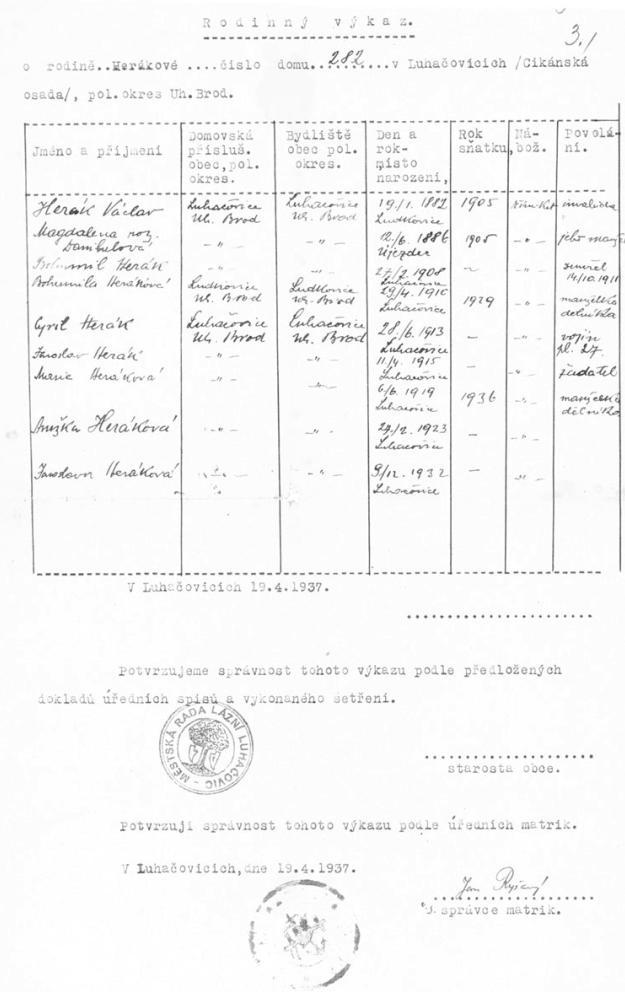 3./
Rodinný výkaz.
o rodině..Herákové ....číslo domu...282......v Luhačovicích /Cikánská
osada/, pol.okres Uh.Brod.
Jméno a příjmení Domovská přísluš. obec,pol. okres. Bydliště obec pol. okres. Den a rok- místo narození, Rok sňatku, Ná- bož. Povolá- ní.
Herák Václav Luhačovice Uh. Brod Luhačovice Uh. Brod 19./1. 1882 Ludkovice 1905 řím. kat invalida
Magdalena roz. Danihelová -„- -„- 12./6. 1886 Újezdec 1905 -„- jeho manž.
Bohumil Herák -„- -„- 27/2. 1908 Luhačovice ~ -„- zemřel 14/10.1911
Bohumila Heráková Ludkovice Uh. Brod Ludkovice Uh. Brod 29/4. 1910 Luhačovice 1929 -„- manželka dělníka
Cyril Herák Luhačovice Uh. Brod Luhačovice Uh. Brod 28./6. 1913 Luhačovice — -„- vojín pl. 27.
Jaroslav Herák -„- -„- 11./4. 1915 Luhačovice — „- žadatel
Marie Heráková -„- -„- 6/6. 1919 Luhačovice 1936 -„- manželka dělníka
Anežka Heráková -„- -„- 1923 Luhačovice — -„-
Jaroslava Heráková -„- -„- 9/12. 1932 Luhačovice — -„-
V Luhačovicích 19.4.1937.
Potvrzujeme správnost tohoto výkazu podle předložených
dokladů úředních spisů a vykonaného šetření.
MĚSTSKÁ RADA LÁZNÍ LUHAČOVIC
starosta obce.
Potvrzuji správnost tohoto výkazu podle úředních matrik.
V Luhačovicích,dne 19.4.1937.
Jan
správce matrik.